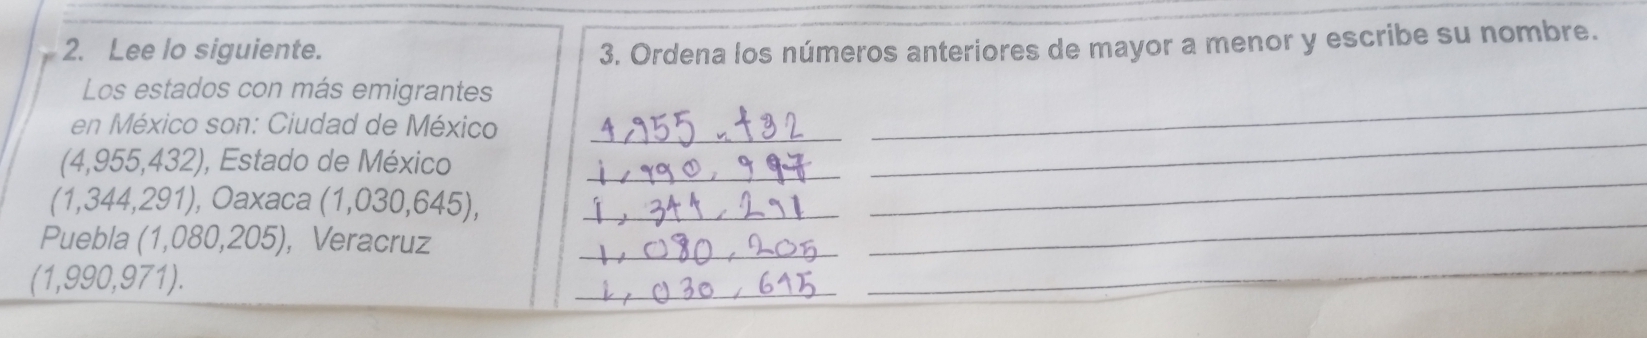 2. Lee lo siguiente.
Los estados con más emigrantes
en México son: Ciudad de México
(4,955,432), Estado de México
(1,344,291), Oaxaca (1,030,645),
Puebla (1,080,205), Veracruz
(1,990,971).
3. Ordena los números anteriores de mayor a menor y escribe su nombre.
4,955,432
1,990,997
1,344,291
1,080,205
1,030,645